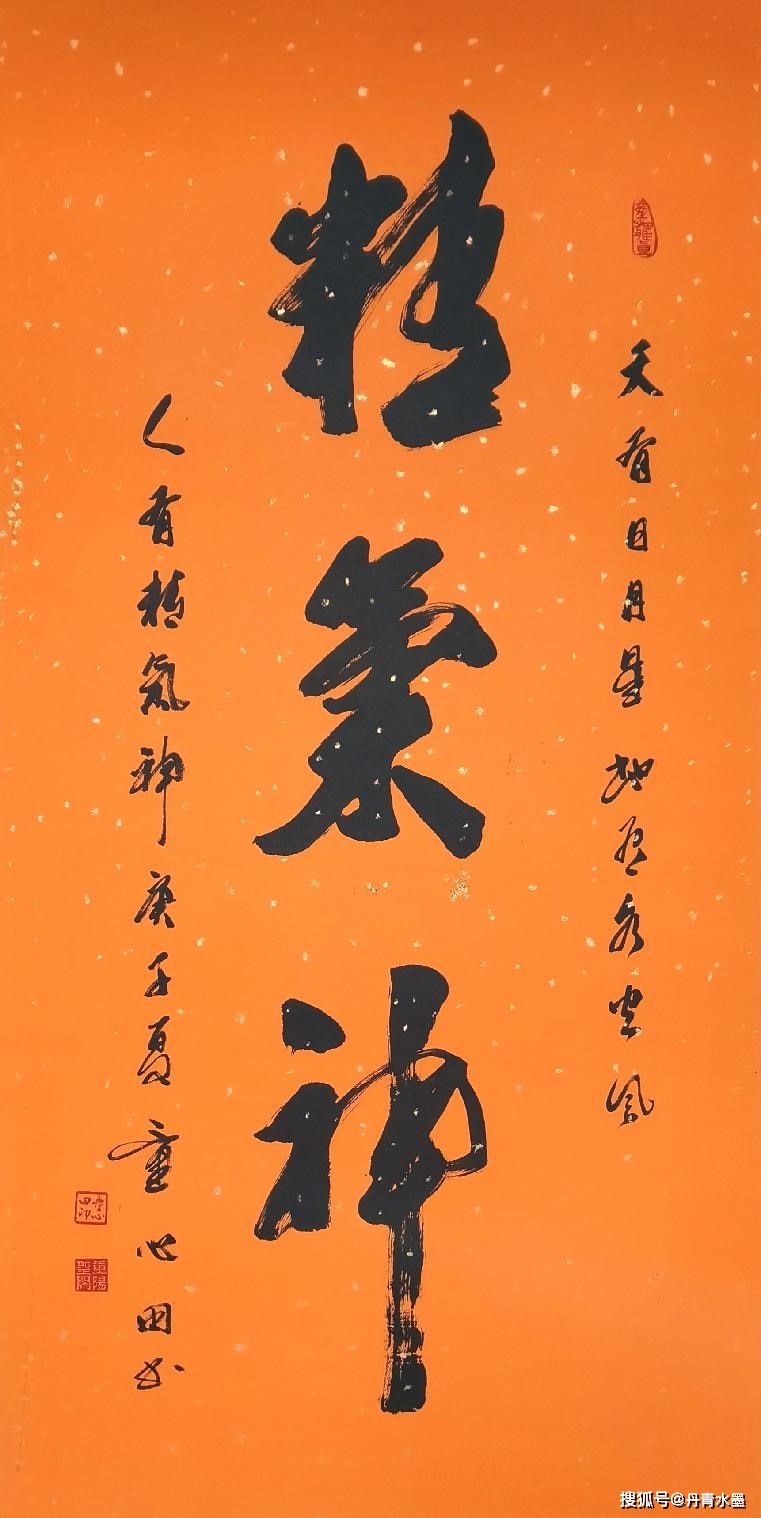 天有日月星地有水火風
精氣神
人有精氣神庚子夏童心田书
童心田印
搜狐号@丹青水墨